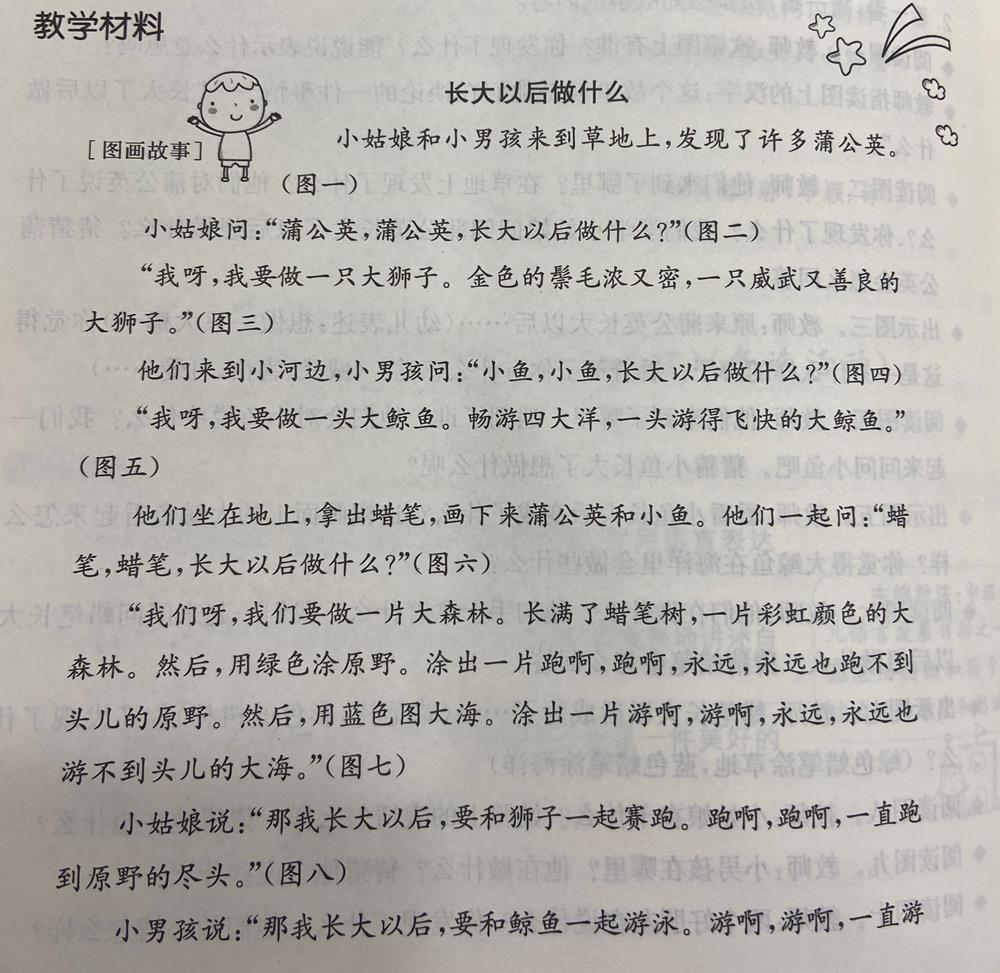 教学材料
长大以后做什么
[图画故事]
小姑娘和小男孩来到草地上，发现了许多蒲公英。
（图一）
小姑娘问：“蒲公英，蒲公英，长大以后做什么？”（图二）
“我呀，我要做一只大狮子。金色的鬃毛浓又密，一只威武又善良的
大狮子。”（图三）
他们来到小河边，小男孩问：“小鱼，小鱼，长大以后做什么？”（图四）
“我呀，我要做一头大鲸鱼。畅游四大洋，一头游得飞快的大鲸鱼。”
（图五）
他们坐在地上，拿出蜡笔，画下来蒲公英和小鱼。他们一起问：“蜡
笔，蜡笔，长大以后做什么？”（图六）
“我们呀，我们要做一片大森林。长满了蜡笔树，一片彩虹颜色的大
森林。然后，用绿色涂原野。涂出一片跑啊，跑啊，永远，永远也跑不到
头儿的原野。然后，用蓝色图大海。涂出一片游啊，游啊，永远，永远也
游不到头儿的大海。”（图七）
小姑娘说：“那我长大以后，要和狮子一起赛跑。跑啊，跑啊，一直跑
到原野的尽头。”（图八）
小男孩说：“那我长大以后，要和鲸鱼一起游泳。游啊，游啊，一直游